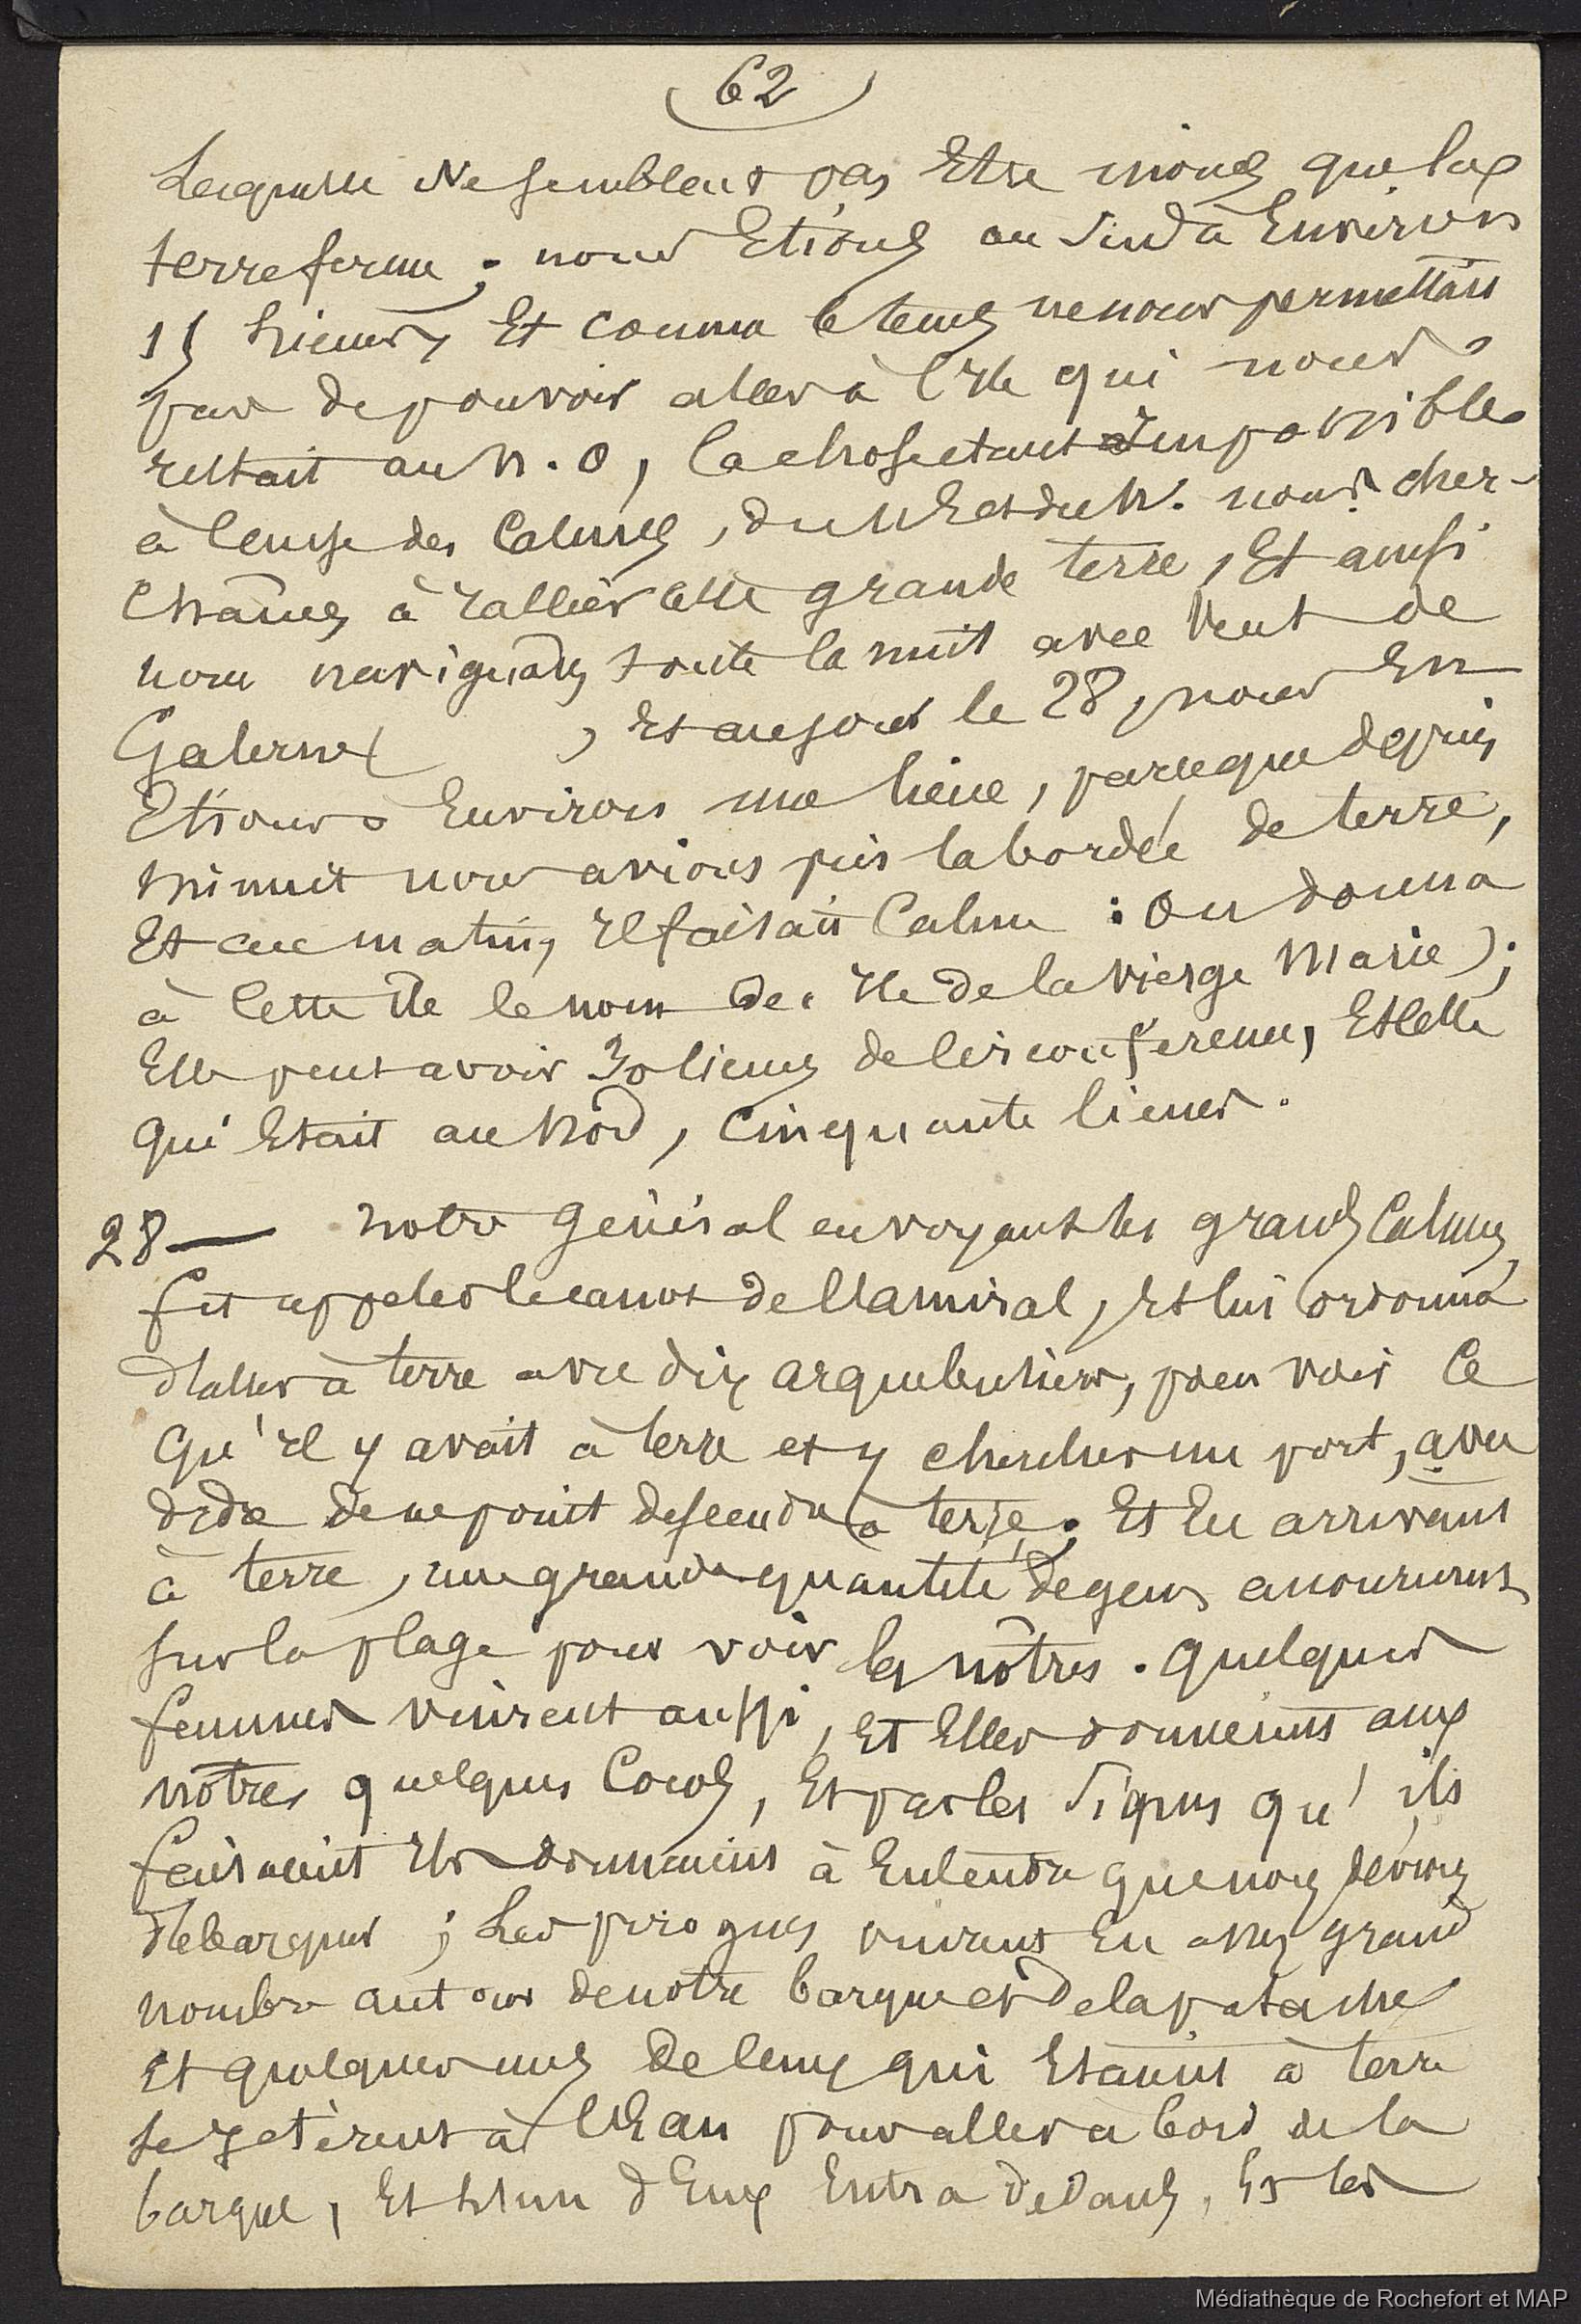 (62)
Laquelle Ne semblant pas Etre moins que la
terre ferme; nous Etions au Sud à Environ
15 lieues, Et comme le temps ne nous permettait
pas de pouvoir aller à l'Ile qui nous
restait au N.O, la chose étant Impossible
à cause des Calmes, du N E et du N. nous cher-
châmes à rallier cette grande terre, Et ainsi
nous navigames toute la nuit avec Vent de
Galerne , Et au jour le 28, nous En
Etions Environ une lieue, parceque depuis
Minuit nous avions pris la bordée de terre,
Et au matin, Il faisait Calme : On donna
à Cette Ile le nom de: Ile de la Vierge Marie);
Elle peut avoir 30 lieues de Circonference, Et Celle
Qui Etait au Nord, Cinquante lieues.
28 — Notre Général en voyant les grands Calmes,
fit appeler le canot de l'Amiral, Et lui ordonna
d'aller à terre avec dix arquebusiers, pour voir Ce
Qu'Il y avait à terre et y chercher un port, avec
de ne point descendre à terre; Et En arrivant
à terre, une grande quantité de gens accoururent
sur la plage pour voir les nôtres. Quelques
femmes vinrent aussi, Et Elles donnerent aux
nôtres quelques Cocos, Et par les Signes qu'ils
faisaient Ils donnaient à Entendre que nous devions
débarquer ; Les pirogues vinrent En assez grand
nombre autour de notre barque et de la patache
Et quelques uns de Ceux qui Etaient à terre
se jetèrent à l'Eau pour aller à bord de la
barque, Et l'un d'Eux Entra dedans, Et les
Médiathèque de Rochefort et MAP